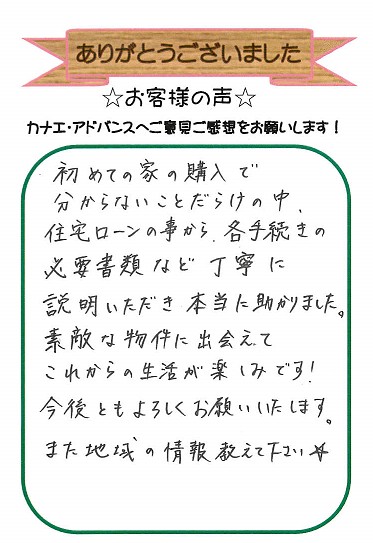 ありがとうございました
☆お客様の声☆
カナエ・アドバンスへご意見ご感想をお願いします!
初めての家の購入で
分からないことだらけの中、
住宅ローンの事から、各手続きの
必要書類など丁寧に
説明いただき本当に助かりました。
素敵な物件に出会えて
これからの生活が楽しみです!
今後ともよろしくお願いいたします。
また地域の情報教えて下さい☆